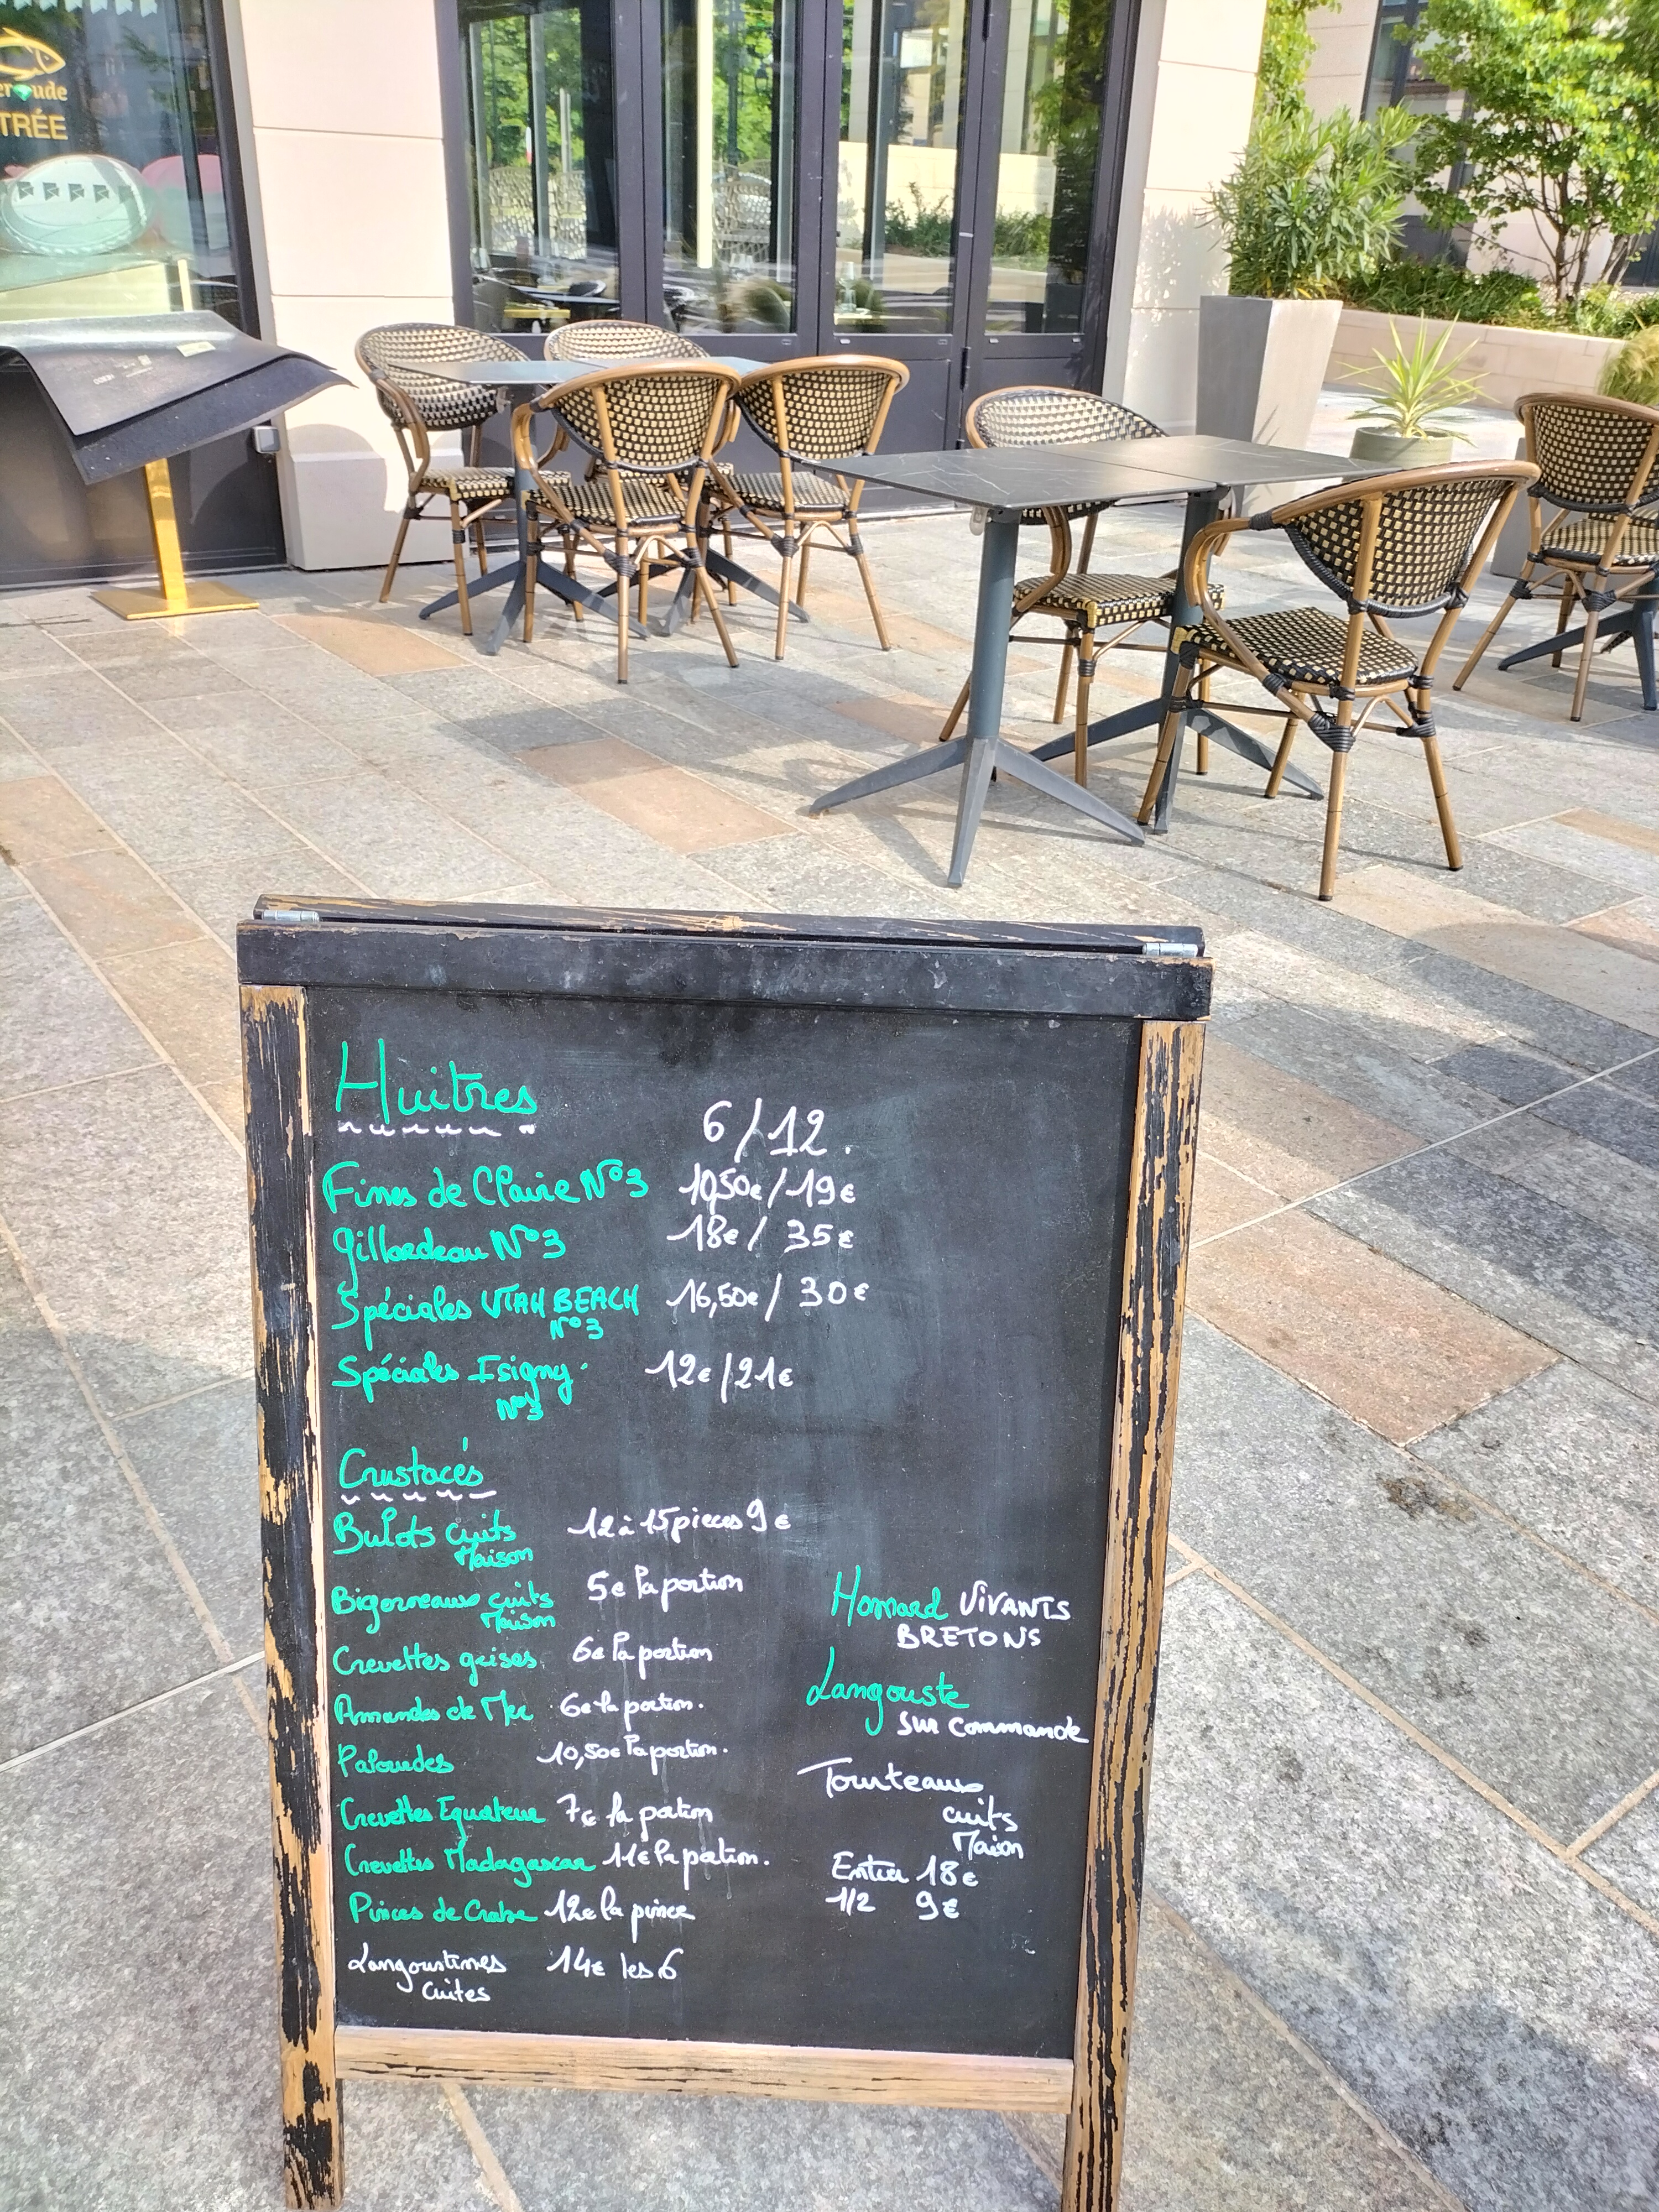 TRÉE
Huitres
6/12.
Fines de Claire N°3 10,50€/19€
Gillardeau N°3 18€/ 35€
Spéciales UTAH BEACH 16,50€/ 30€
N°3
Spéciales Isigny 12€/21€
N°3
Crustacés
Bulots cuits 12 à 15 pieces 9€
Maison
Bigorneaux cuits 5€ la portion
Maison
Crevettes grises 6€ la portion
Amandes de Mer 6€ la portion.
Palourdes 10,50€ la portion.
Crevettes Equateur 7€ la portion
Crevettes Madagascar 11€ la portion.
Pinces de Crabe 12€ la pince
Langoustines 14€ les 6
cuites
Homard VIVANTS
BRETONS
Langouste
sur commande
Tourteaux
cuits
Maison
Entier 18€
1/2 9€